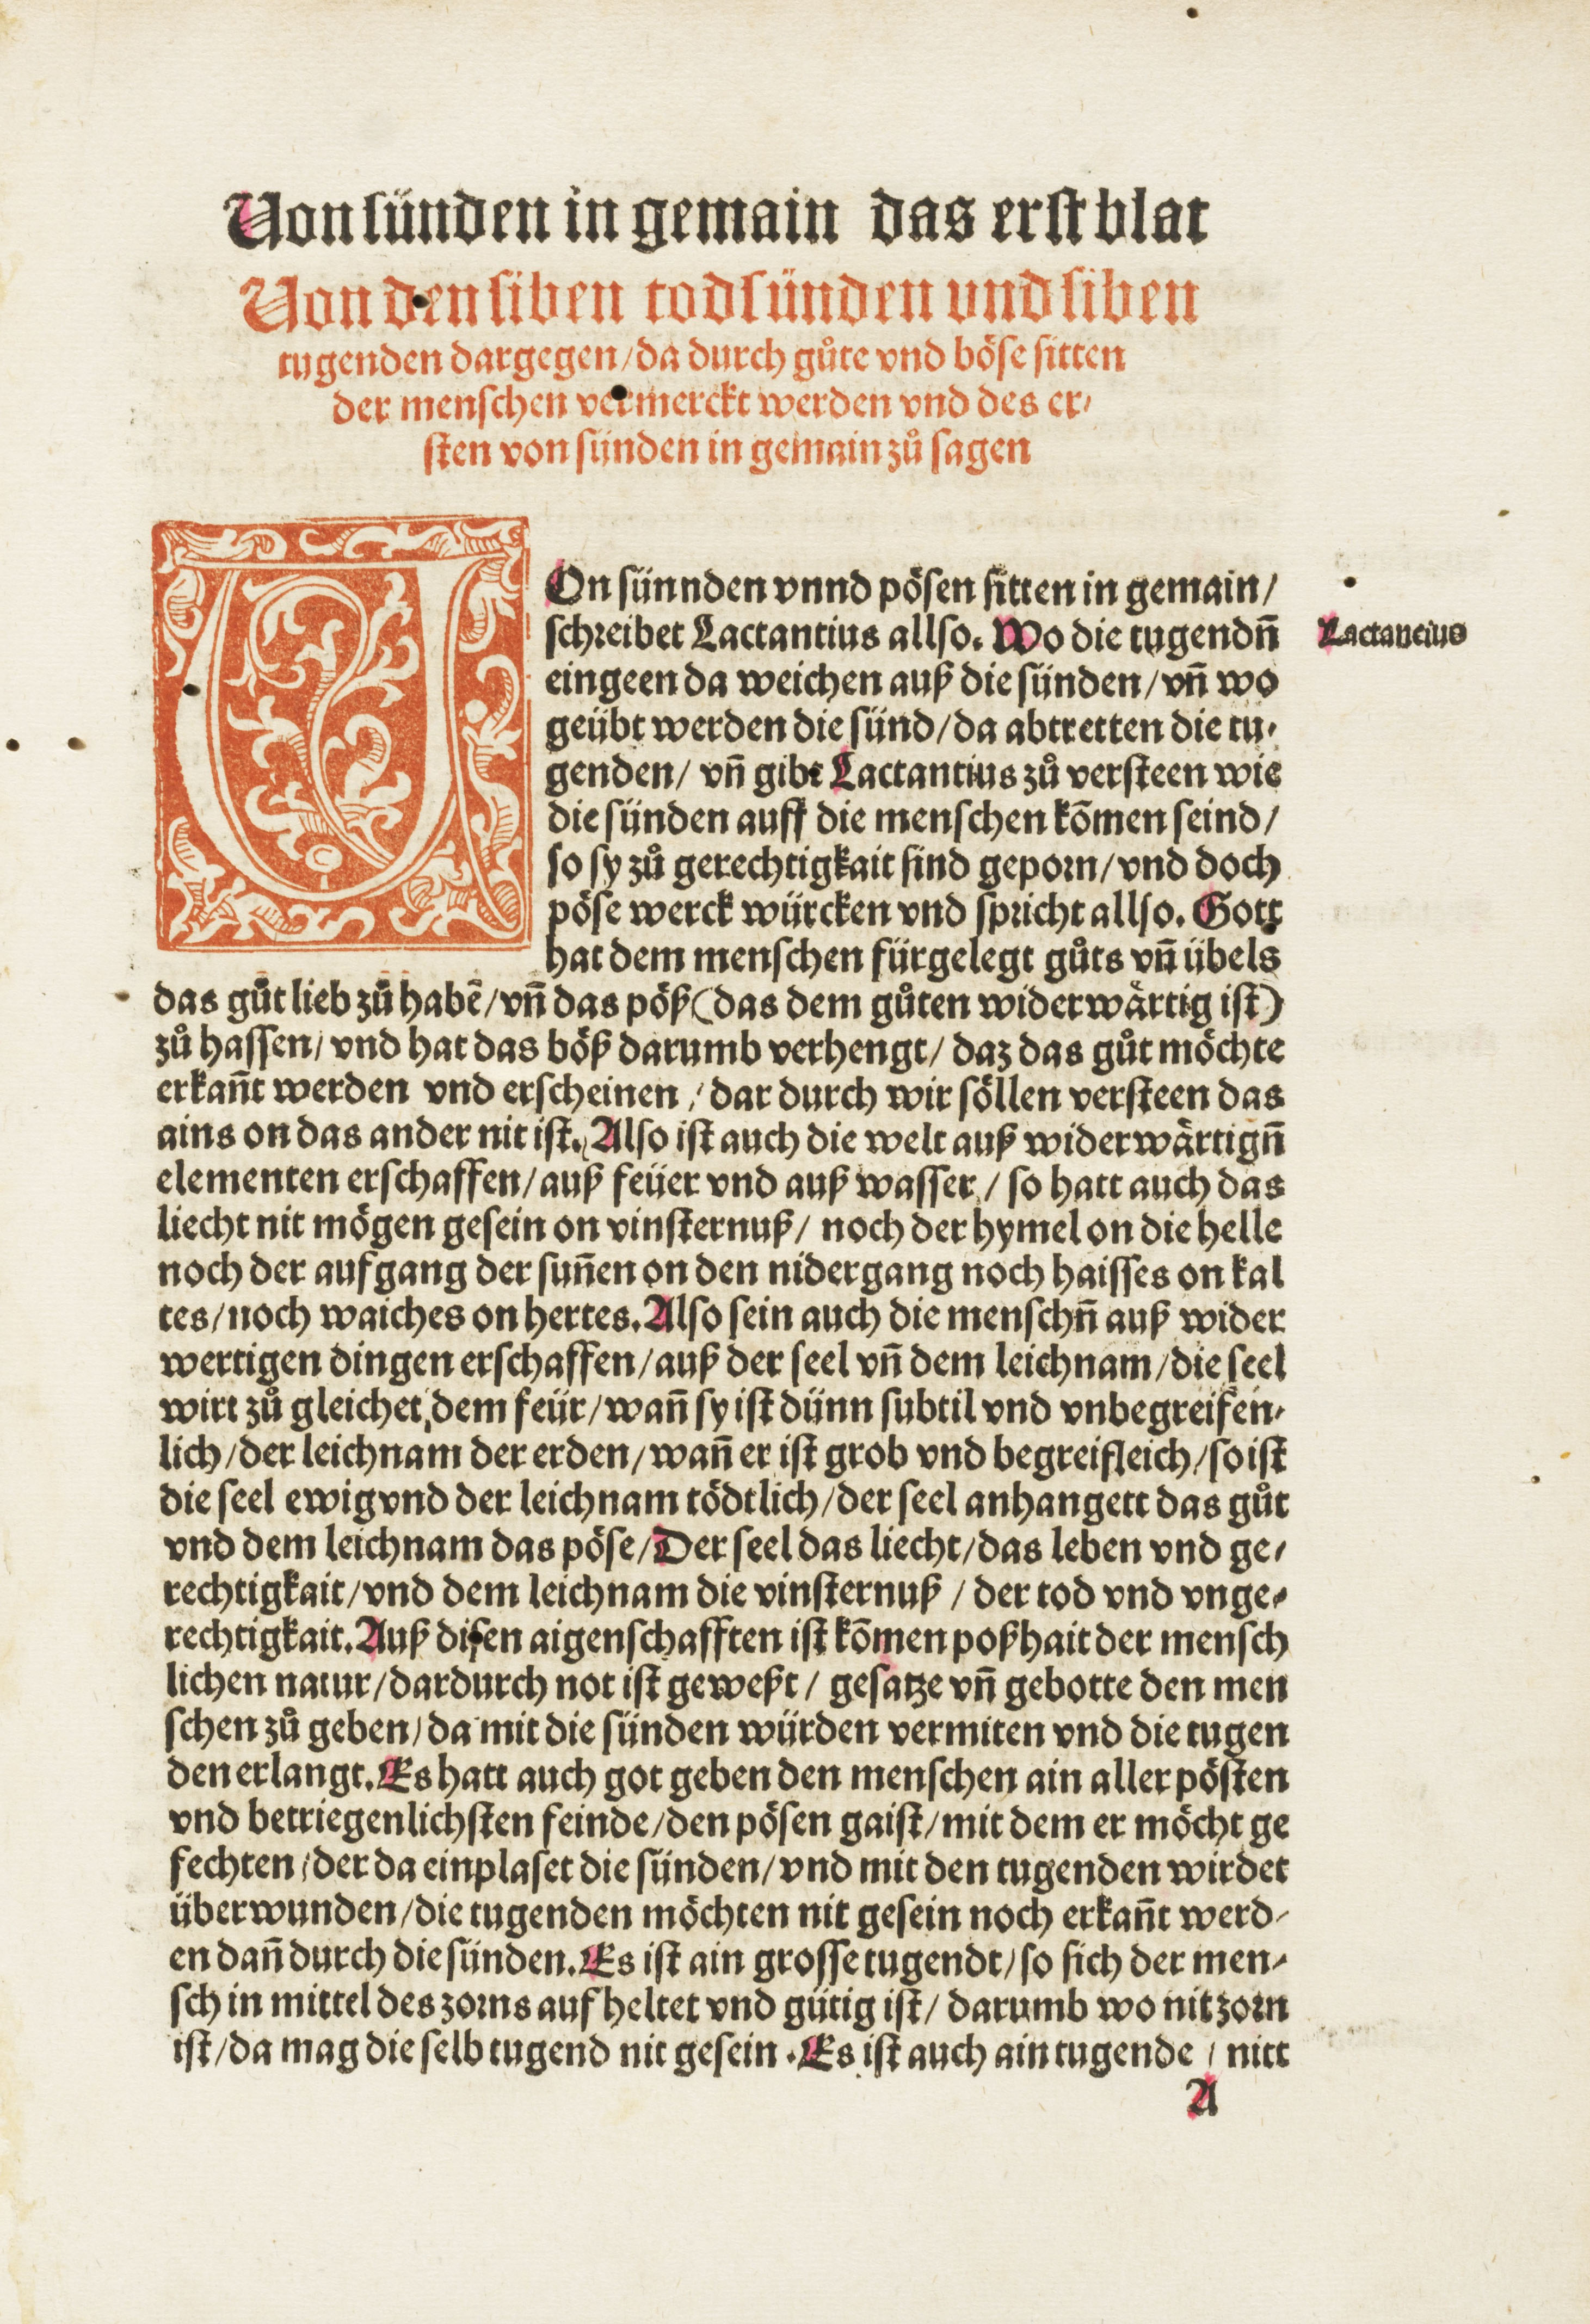 Von sünden in gemain das erst blat
Von den siben todsünden vnd siben
tugenden dargegen/da durch gůte vnd böse sitten
der menschen vermerckt werden vnd des er/
sten von sünden in gemain zů sagen
VOn sünnden vnnd pösen sitten in gemain/
schreibet Lactantius allso. Wo die tugendn̄
Lactantius
eingeen da weichen auß die sünden/vn̄ wo
geübt werden die sünd/da abtretten die tu/
genden/ vn̄ gibt Lactantius zů versteen wie
die sünden auff die menschen kōmen seind/
so sy zů gerechtigkait sind geporn/vnd doch
pöse werck würcken vnd spricht allso. Gott
hat dem menschen fürgelegt gůts vn̄ übels
das gůt lieb zů habē/vn̄ das pöß (das dem gůten widerwärtig ist)
zů hassen/ vnd hat das böß darumb verhengt/ daz das gůt möchte
erkan̄t werden vnd erscheinen / dar durch wir söllen versteen das
ains on das ander nit ist. Also ist auch die welt auß widerwärtign̄
elementen erschaffen/auß feüer vnd auß wasser / so hatt auch das
liecht nit mögen gesein on vinsternuß/ noch der hymel on die helle
noch der aufgang der sun̄en on den nidergang noch haisses on kal
tes/noch waiches on hertes. Also sein auch die menschn̄ auß wider
wertigen dingen erschaffen/auß der seel vn̄ dem leichnam/die seel
wirt zů gleichet dem feür/wan̄ sy ist dünn subtil vnd vnbegreifen/
lich/der leichnam der erden/wan̄ er ist grob vnd begreifleich/so ist
die seel ewig vnd der leichnam tödtlich/der seel anhangett das gůt
vnd dem leichnam das pöse/Der seel das liecht/das leben vnd ge/
rechtigkait/vnd dem leichnam die vinsternuß / der tod vnd vnge/
rechtigkait. Auß disen aigenschafften ist kōmen poßhait der mensch
lichen natur/dardurch not ist geweßt/ gesatze vn̄ gebotte den men
schen zů geben/da mit die sünden würden vermiten vnd die tugen
den erlangt. Es hatt auch got geben den menschen ain aller pösten
vnd betriegenlichsten feinde/den pösen gaist/mit dem er möcht ge
fechten/der da einplaset die sünden/vnd mit den tugenden wirdet
überwunden/die tugenden möchten nit gesein noch erkan̄t werd/
en dan̄ durch die sünden. Es ist ain grosse tugendt/so sich der men/
sch in mittel des zorns auf heltet vnd gütig ist/ darumb wo nit zorn
ist/da mag die selb tugend nit gesein. Es ist auch ain tugende / nitt
A